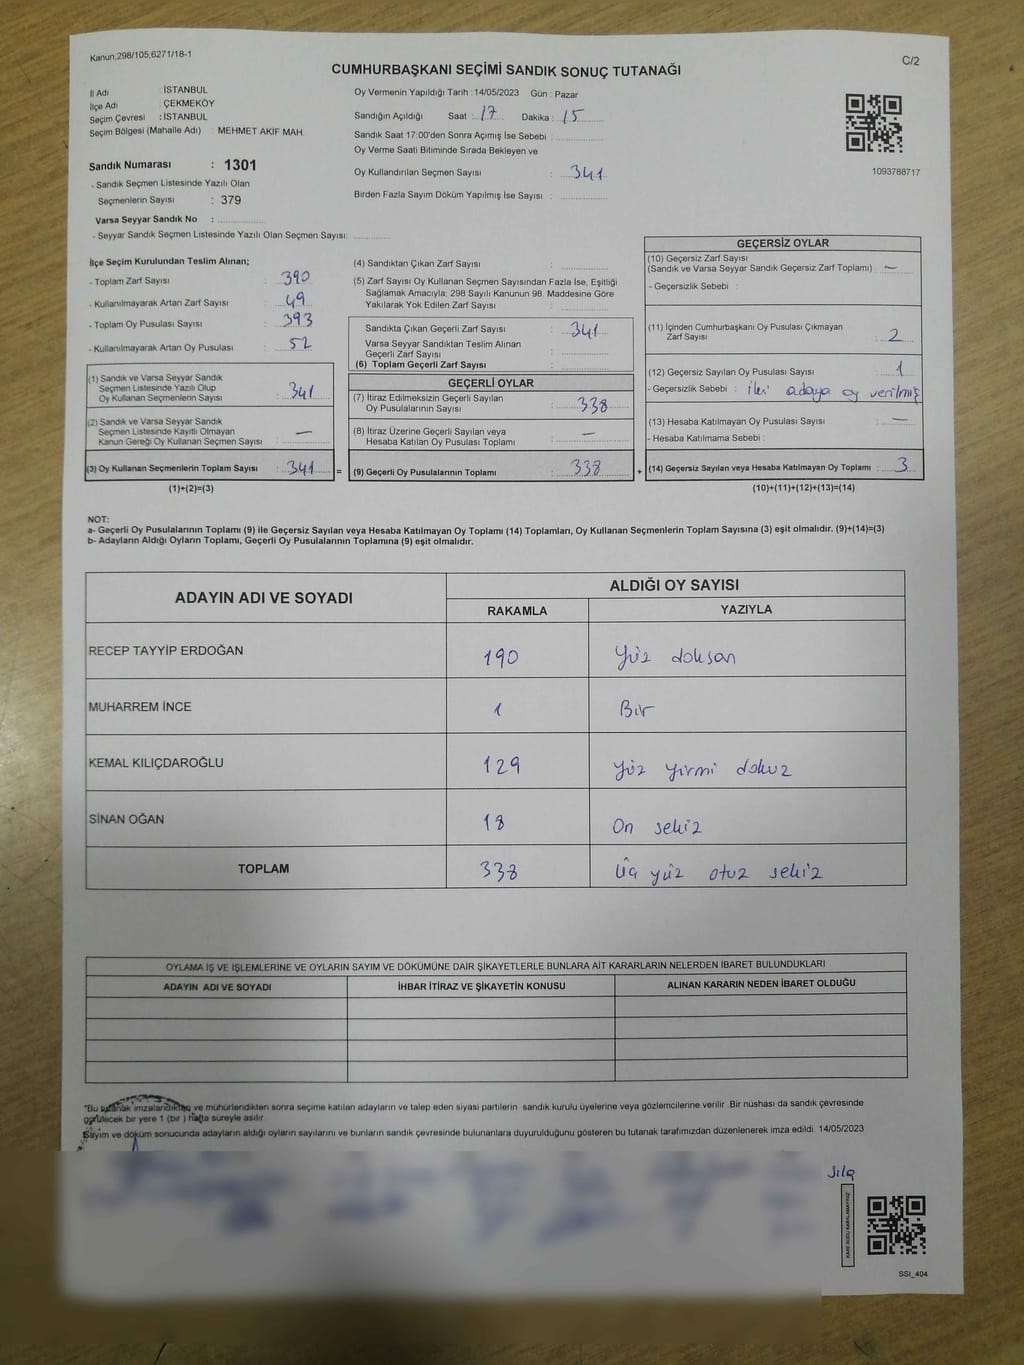 Kanun,298/105;6271/18-1
C/2
CUMHURBAŞKANI SEÇİMİ SANDIK SONUÇ TUTANAĞI
İl Adı : İSTANBUL
İlçe Adı : ÇEKMEKÖY
Seçim Çevresi : İSTANBUL
Seçim Bölgesi (Mahalle Adı) : MEHMET AKİF MAH.
Sandık Numarası : 1301
- Sandık Seçmen Listesinde Yazılı Olan
Seçmenlerin Sayısı : 379
Varsa Seyyar Sandık No : ................
- Seyyar Sandık Seçmen Listesinde Yazılı Olan Seçmen Sayısı: .............
Oy Vermenin Yapıldığı Tarih :14/05/2023 Gün : Pazar
Sandığın Açıldığı Saat : 17 Dakika : 15
Sandık Saat 17:00'den Sonra Açımış İse Sebebi : ................
Oy Verme Saati Bitiminde Sırada Bekleyen ve
Oy Kullandırılan Seçmen Sayısı : 341
Birden Fazla Sayım Döküm Yapılmış İse Sayısı : ................
1093788717
İlçe Seçim Kurulundan Teslim Alınan;
- Toplam Zarf Sayısı : 390
- Kullanılmayarak Artan Zarf Sayısı : 49
- Toplam Oy Pusulası Sayısı : 393
- Kullanılmayarak Artan Oy Pusulası : 52
(1) Sandık ve Varsa Seyyar Sandık
Seçmen Listesinde Yazılı Olup
Oy Kullanan Seçmenlerin Sayısı : 341
(2) Sandık ve Varsa Seyyar Sandık
Seçmen Listesinde Kayıtlı Olmayan
Kanun Gereği Oy Kullanan Seçmen Sayısı : —
(3) Oy Kullanan Seçmenlerin Toplam Sayısı : 341 =
(1)+(2)=(3)
(4) Sandıktan Çıkan Zarf Sayısı : ................
(5) Zarf Sayısı Oy Kullanan Seçmen Sayısından Fazla İse, Eşitliği
Sağlamak Amacıyla, 298 Sayılı Kanunun 98. Maddesine Göre
Yakılarak Yok Edilen Zarf Sayısı : ................
Sandıkta Çıkan Geçerli Zarf Sayısı : 341
Varsa Seyyar Sandıktan Teslim Alınan
Geçerli Zarf Sayısı : ................
(6) Toplam Geçerli Zarf Sayısı : ................
GEÇERLİ OYLAR
(7) İtiraz Edilmeksizin Geçerli Sayılan
Oy Pusulalarının Sayısı : 338
(8) İtiraz Üzerine Geçerli Sayılan veya
Hesaba Katılan Oy Pusulası Toplamı : —
(9) Geçerli Oy Pusulalarının Toplamı : 338 +
GEÇERSİZ OYLAR
(10) Geçersiz Zarf Sayısı
(Sandık ve Varsa Seyyar Sandık Geçersiz Zarf Toplamı) : —
- Geçersizlik Sebebi :
(11) İçinden Cumhurbaşkanı Oy Pusulası Çıkmayan
Zarf Sayısı : 2
(12) Geçersiz Sayılan Oy Pusulası Sayısı : 1
- Geçersizlik Sebebi : iki adaya oy verilmiş
(13) Hesaba Katılmayan Oy Pusulası Sayısı : —
- Hesaba Katılmama Sebebi :
(14) Geçersiz Sayılan veya Hesaba Katılmayan Oy Toplamı : 3
(10)+(11)+(12)+(13)=(14)
NOT:
a- Geçerli Oy Pusulalarının Toplamı (9) ile Geçersiz Sayılan veya Hesaba Katılmayan Oy Toplamı (14) Toplamları, Oy Kullanan Seçmenlerin Toplam Sayısına (3) eşit olmalıdır. (9)+(14)=(3)
b- Adayların Aldığı Oyların Toplamı, Geçerli Oy Pusulalarının Toplamına (9) eşit olmalıdır.
ADAYIN ADI VE SOYADI
ALDIĞI OY SAYISI
RAKAMLA YAZIYLA
RECEP TAYYİP ERDOĞAN 190 Yüz doksan
MUHARREM İNCE 1 Bir
KEMAL KILIÇDAROĞLU 129 Yüz yirmi dokuz
SİNAN OĞAN 18 On sekiz
TOPLAM 338 Üç yüz otuz sekiz
OYLAMA İŞ VE İŞLEMLERİNE VE OYLARIN SAYIM VE DÖKÜMÜNE DAİR ŞİKAYETLERLE BUNLARA AİT KARARLARIN NELERDEN İBARET BULUNDUKLARI
ADAYIN ADI VE SOYADI İHBAR İTİRAZ VE ŞİKAYETİN KONUSU ALINAN KARARIN NEDEN İBARET OLDUĞU
*Bu tutanak imzalandıktan ve mühürlendikten sonra seçime katılan adayların ve talep eden siyasi partilerin sandık kurulu üyelerine veya gözlemcilerine verilir .Bir nüshası da sandık çevresinde
görülecek bir yere 1 (bir ) hafta süreyle asılır.
Sayım ve döküm sonucunda adayların aldığı oyların sayılarını ve bunların sandık çevresinde bulunanlara duyurulduğunu gösteren bu tutanak tarafımızdan düzenlenerek imza edildi. 14/05/2023
SSI_404